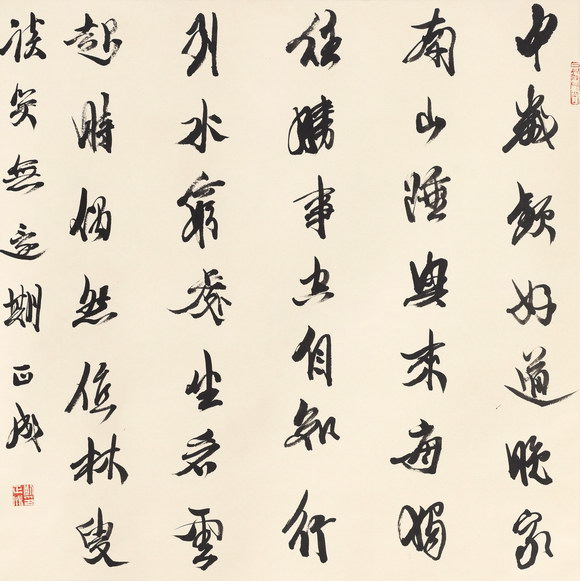 中歲頗好道晚家
南山陲興來每獨
往勝事空自知行
到水窮處坐看雲
起時偶然值林叟
談笑無還期 正成